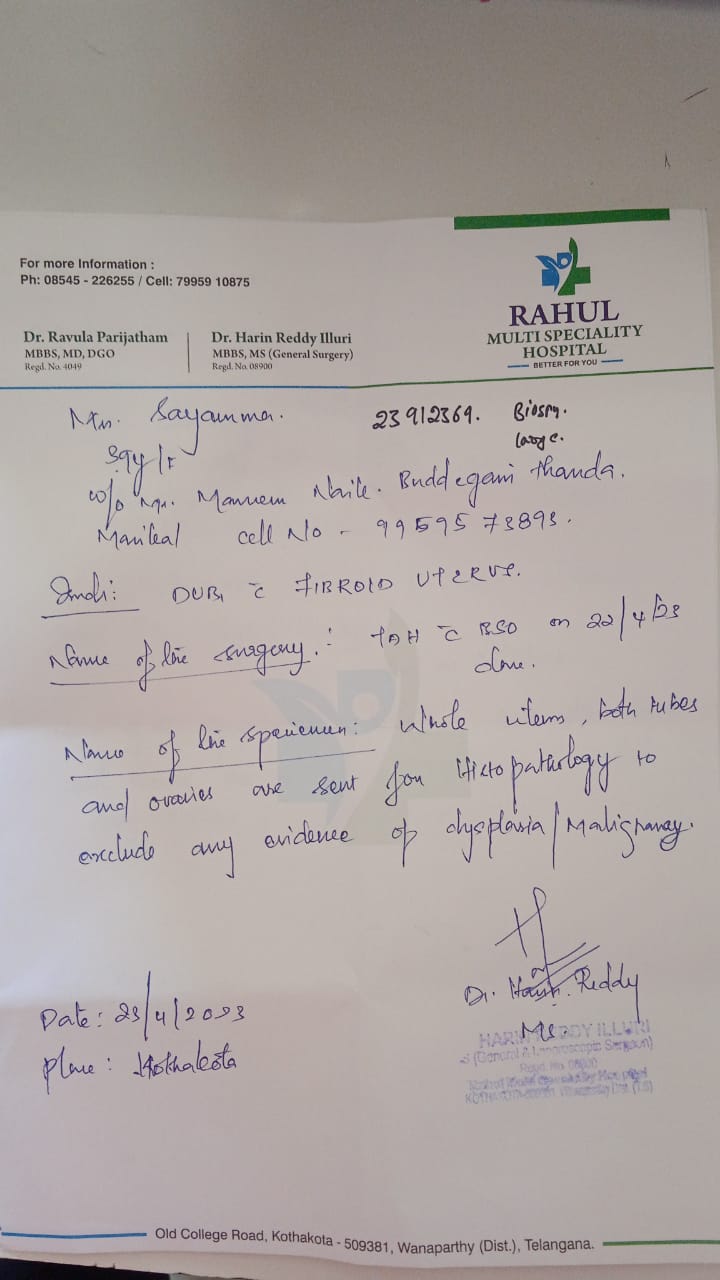 For more Information :
Ph: 08545 - 226255 / Cell: 79959 10875
RAHUL
MULTI SPECIALITY
HOSPITAL
BETTER FOR YOU
Dr. Ravula Parijatham
MBBS, MD, DGO
Regd. No. 4049
Dr. Harin Reddy Illuri
MBBS, MS (General Surgery)
Regd. No. 08900
Sayamma.
23912369. Biospy.
large.
39y/F
w/o Mr. Naik. Buddegani thanda.
cell No - 9959573893.
DUB, c̄ FIBROID UTERUS.
Name of the surgery: TAH c̄ BSO on 22/4/23
done.
Name of the specimen: Whole uterus, both tubes
and ovaries are sent for Histopathology to
exclude any evidence of dysplasia/Malignancy.
Dr. Reddy
MS
HARIN REDDY ILLURI
(General & Laparoscopic Surgeon)
Regd. No. 08900
Date: 23/4/2023
place: Kothakota
Old College Road, Kothakota - 509381, Wanaparthy (Dist.), Telangana.